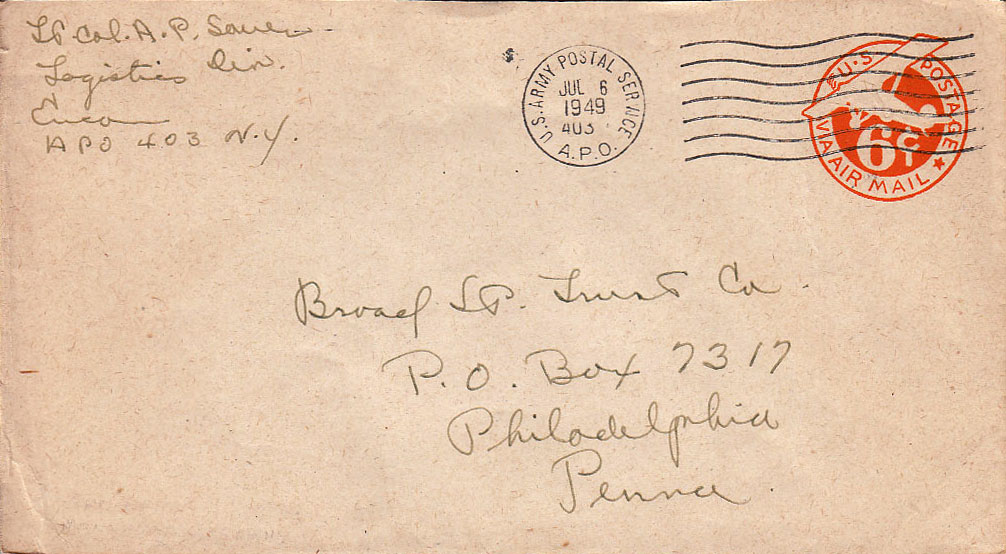 Lt Col. A. P. Sauer
Logistics Div.
Eucom
APO 403 N.Y.
U.S. ARMY POSTAL SERVICE
JUL 6
1949
403
A.P.O.
U.S. POSTAGE
6¢
VIA AIR MAIL
Broad St. Trust Co.
P.O. Box 7317
Philadelphia
Penna